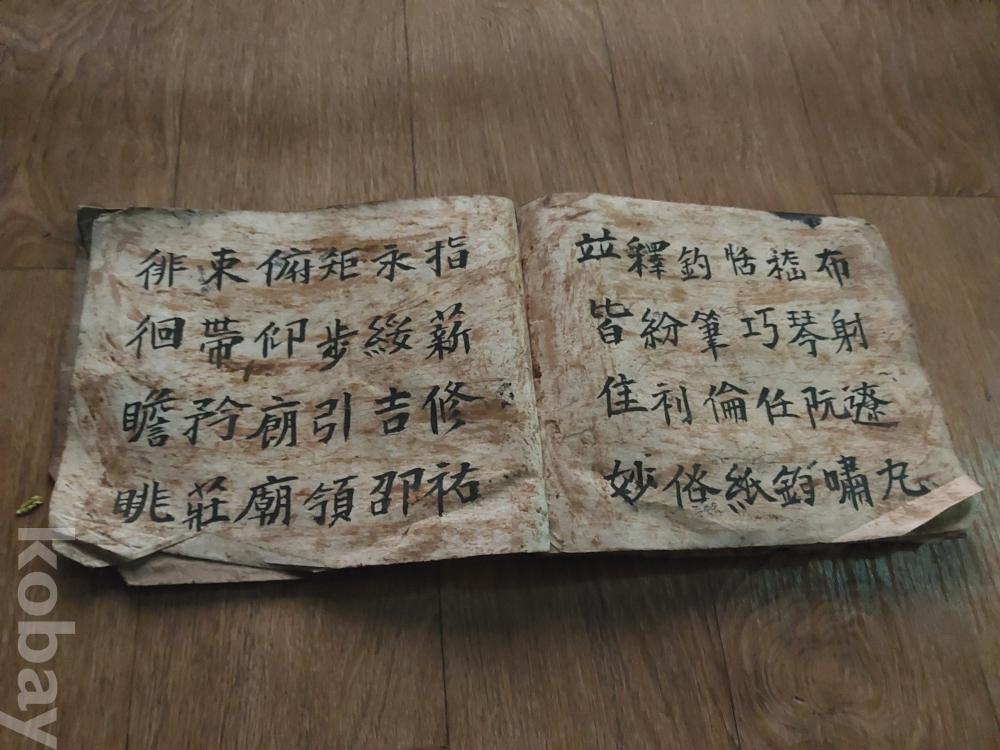 布射遼丸
嵇琴阮嘯
恬巧任鈞
釣筆倫紙
釋紛利俗
並皆佳妙
指薪修祐
永綏吉邵
矩步引領
俯仰廊廟
束帶矜莊
徘徊瞻眺
kobay